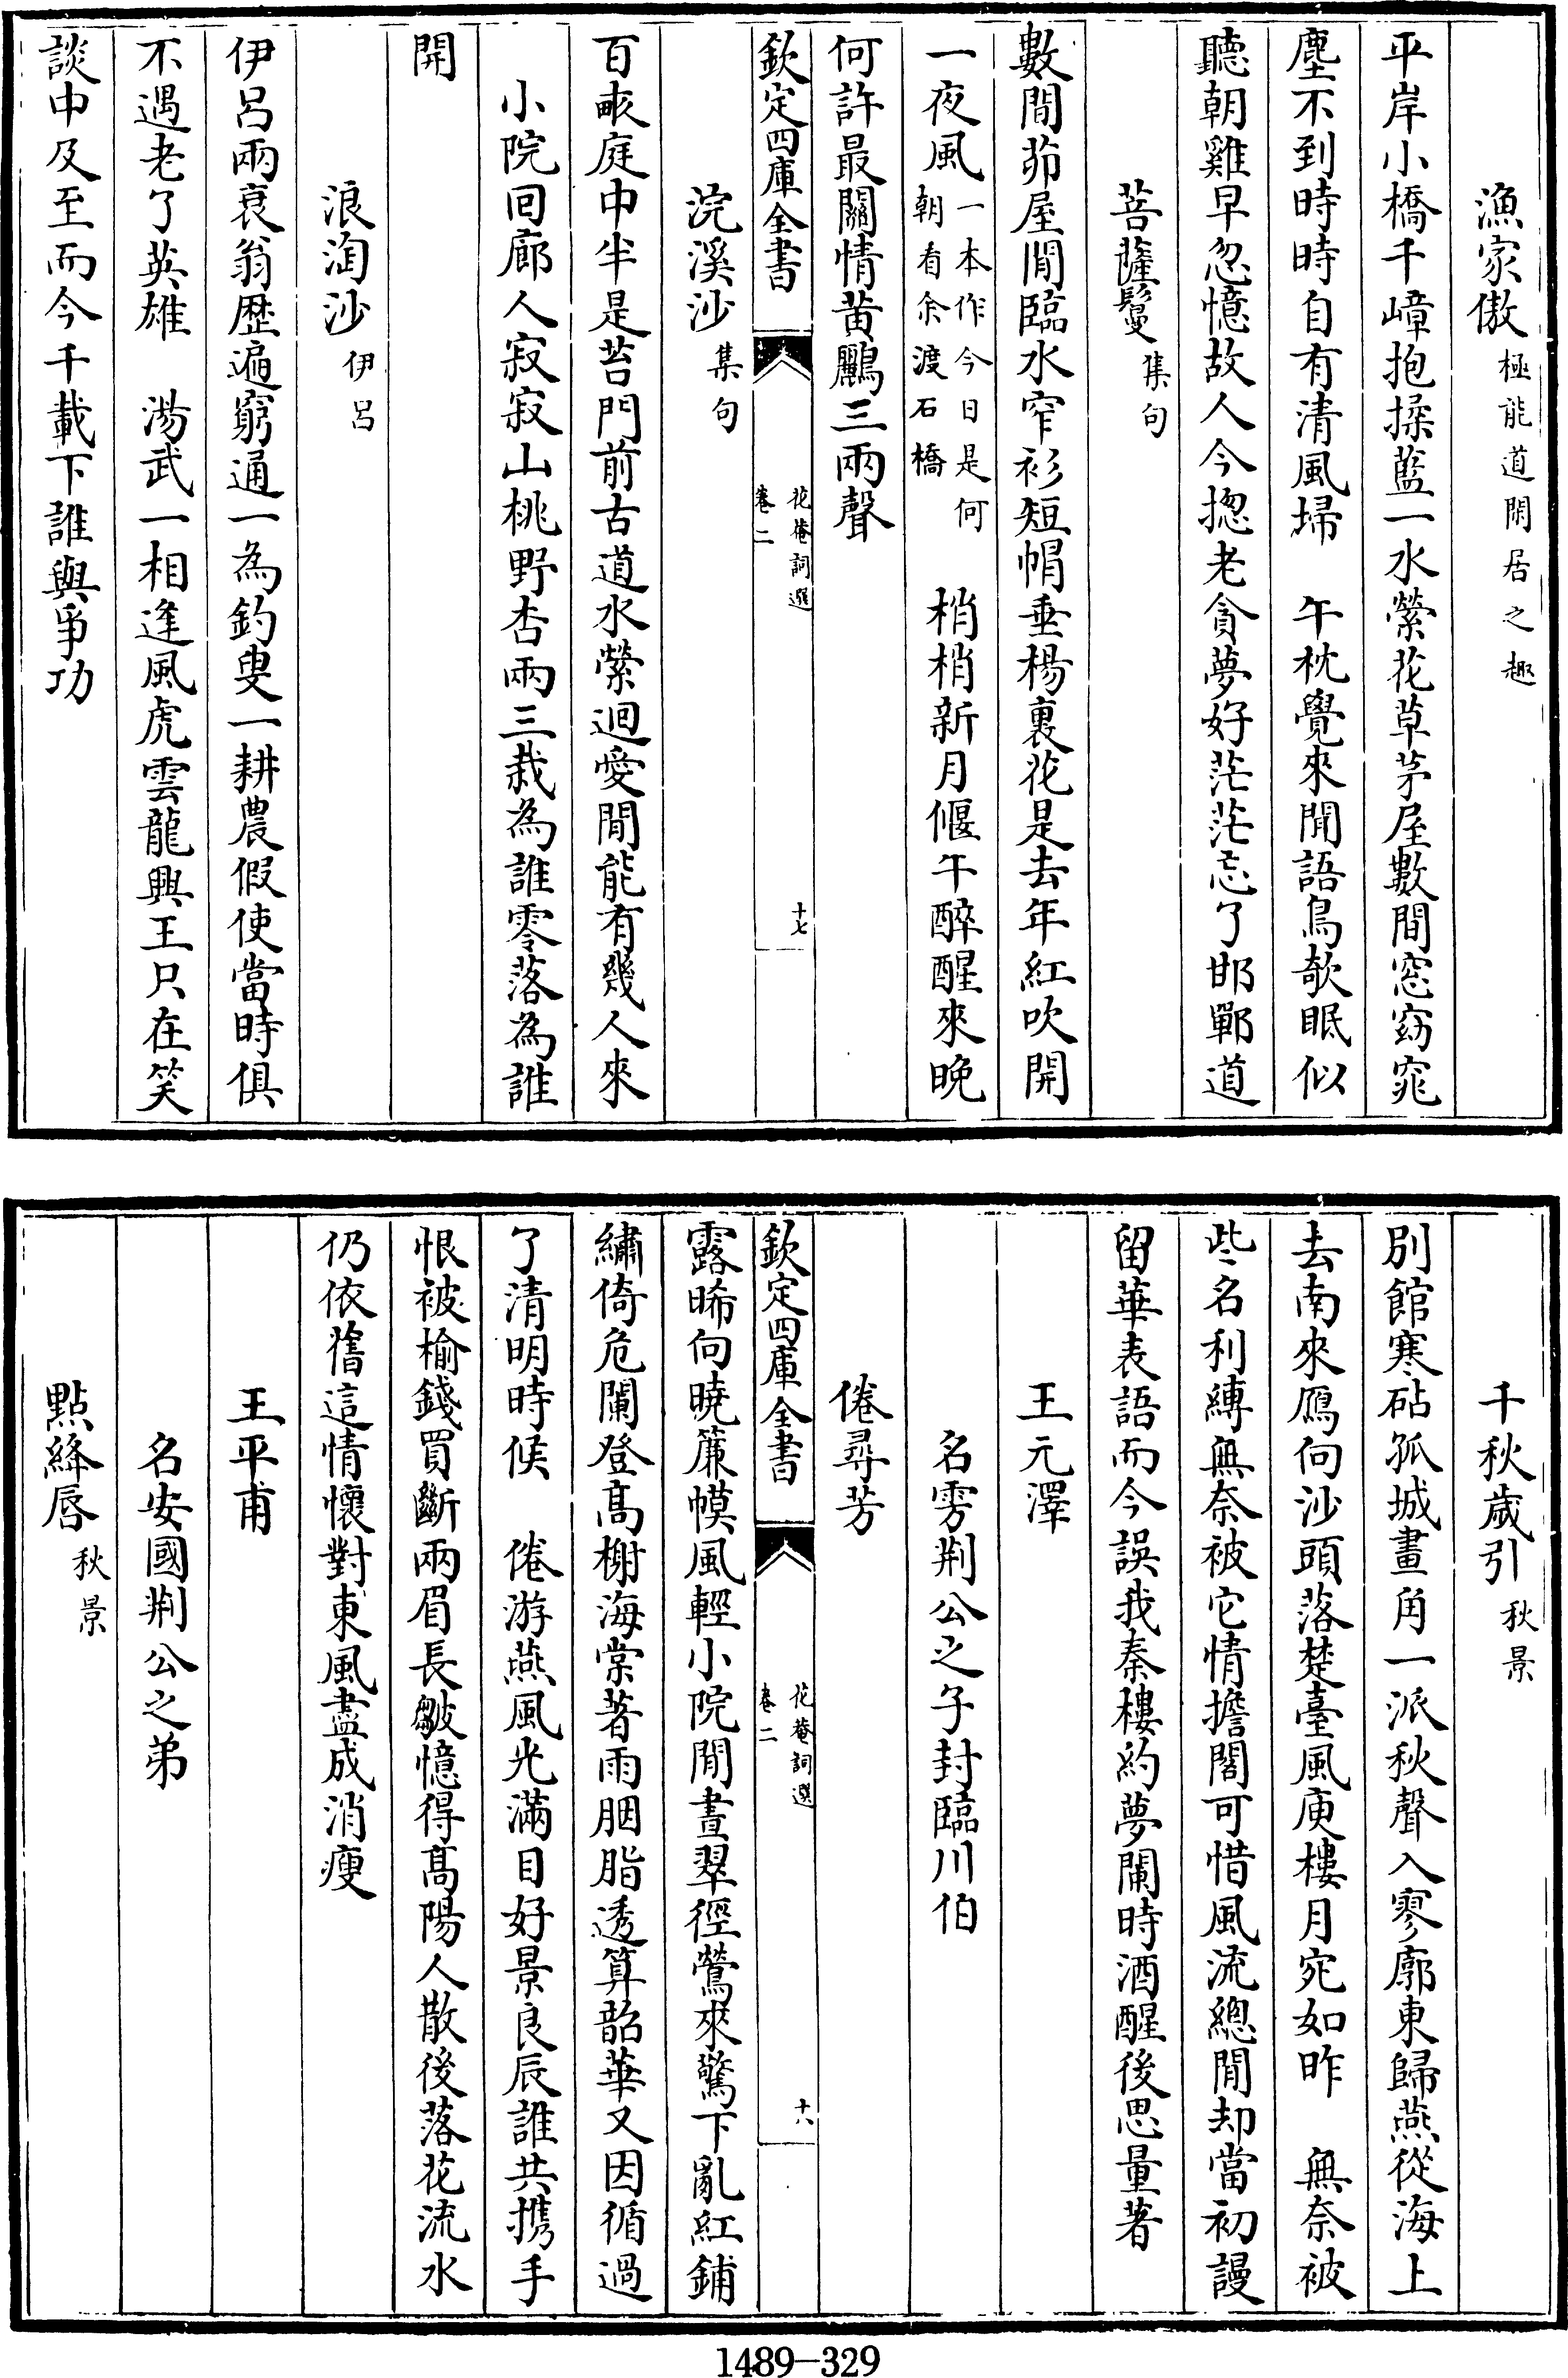 漁家傲極能道閑居之趣
平岸小橋千嶂抱揉藍一水縈花草茅屋數間窓窈窕
塵不到時時自有清風埽　午枕覺來聞語鳥欹眠似
聽朝雞早忽憶故人今揔老貪夢好茫茫忘了邯鄲道
菩薩鬘集句
數間茆屋閒臨水窄衫短帽垂楊裏花是去年紅吹開
一夜風一本作今日是何朝看余渡石橋　梢梢新月偃午醉醒來晚
何許最關情黄鸝三兩聲
欽定四庫全書　花菴詞選卷二　十七
浣溪沙集句
百畝庭中半是苔門前古道水縈迴愛閒能有幾人來
小院回廊人寂寂山桃野杏兩三栽為誰零落為誰
開
浪淘沙伊呂
伊呂兩衰翁歴遍窮通一為釣叟一耕農假使當時俱
不遇老了英雄　湯武一相逢風虎雲龍興王只在笑
談中及至而今千載下誰與爭功
千秋歲引秋景
別館寒砧孤城畫角一派秋聲入寥廓東歸燕從海上
去南來鴈向沙頭落楚臺風庾樓月宛如昨　無奈被
些名利縛無奈被它情擔閣可惜風流總閒却當初謾
留華表語而今誤我秦樓約夢闌時酒醒後思量著
王元澤
名雱荆公之子封臨川伯
倦尋芳
欽定四庫全書　花菴詞選卷二　十八
露晞向曉簾幙風輕小院閒晝翠徑鶯來驚下亂紅鋪
繡倚危闌登髙榭海棠著雨胭脂透算韶華又因循過
了清明時候　倦游燕風光滿目好景良辰誰共携手
恨被榆錢買斷兩眉長皺憶得髙陽人散後落花流水
仍依舊這情懷對東風盡成消瘦
王平甫
名安國荆公之弟
點絳唇秋景
1489—329